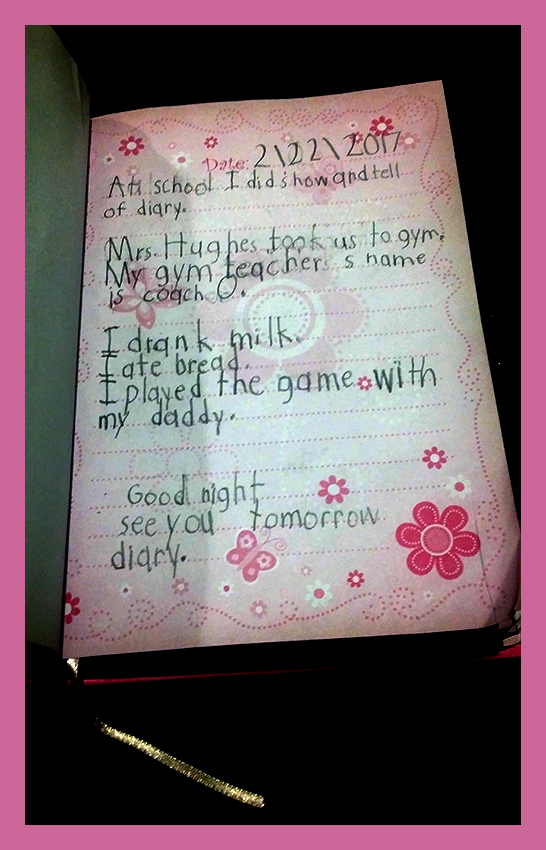 Date: 2\22\2017
At school I did show and tell
of diary.
Mrs. Hughes took us to gym.
My gym teacher s name
is coach O.
I drank milk.
I ate bread.
I played the game with
my daddy.
Good night
see you tomorrow
diary.